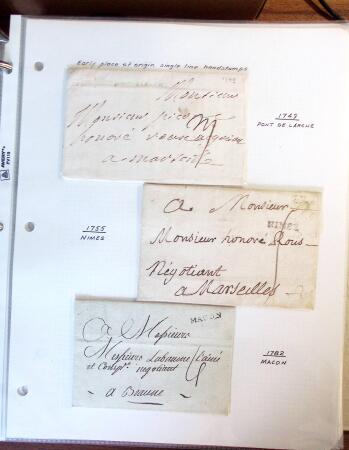 Early place of origin single line handstamps
Monsieur
Monsieur
honoré
a
1749
PONT DE L'ARCHE
1755
NIMES
A Monsieur
NIMES
Monsieur honoré Rous-
Négotiant
a Marseilles
MACON
A Messieurs
Messieurs Labaume L'ainé
et Comp^e. negotiant
- a Beaune -
1782
MACON
AVERY